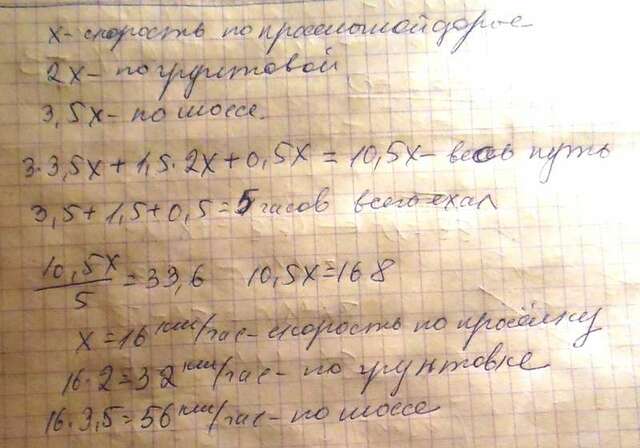 x - скорость по просёлочной дороге
2x - по грунтовой
3,5x - по шоссе.
3·3,5x + 1,5·2x + 0,5x = 10,5x - весь путь
3,5 + 1,5 + 0,5 = 5 часов всего ехал
10,5x/5 = 33,6 10,5x = 168
x = 16 км/час - скорость по просёлку
16·2 = 32 км/час - по грунтовке
16·3,5 = 56 км/час - по шоссе